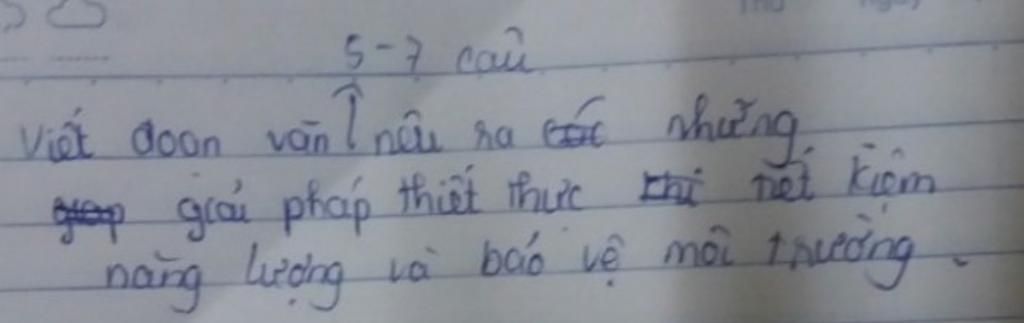 5-7 câu
Viết đoạn văn nêu ra những
giải pháp thiết thực tiết kiệm
năng lượng và bảo vệ môi trường.